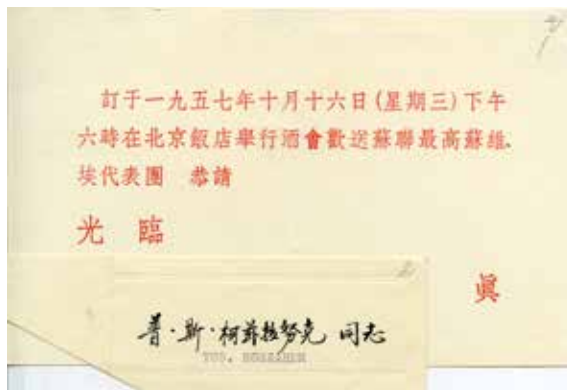 訂于一九五七年十月十六日(星期三)下午
六時在北京飯店舉行酒會歡送蘇聯最高蘇維
埃代表團　恭請
光　臨
眞
普·斯·柯菲拉努克 同志